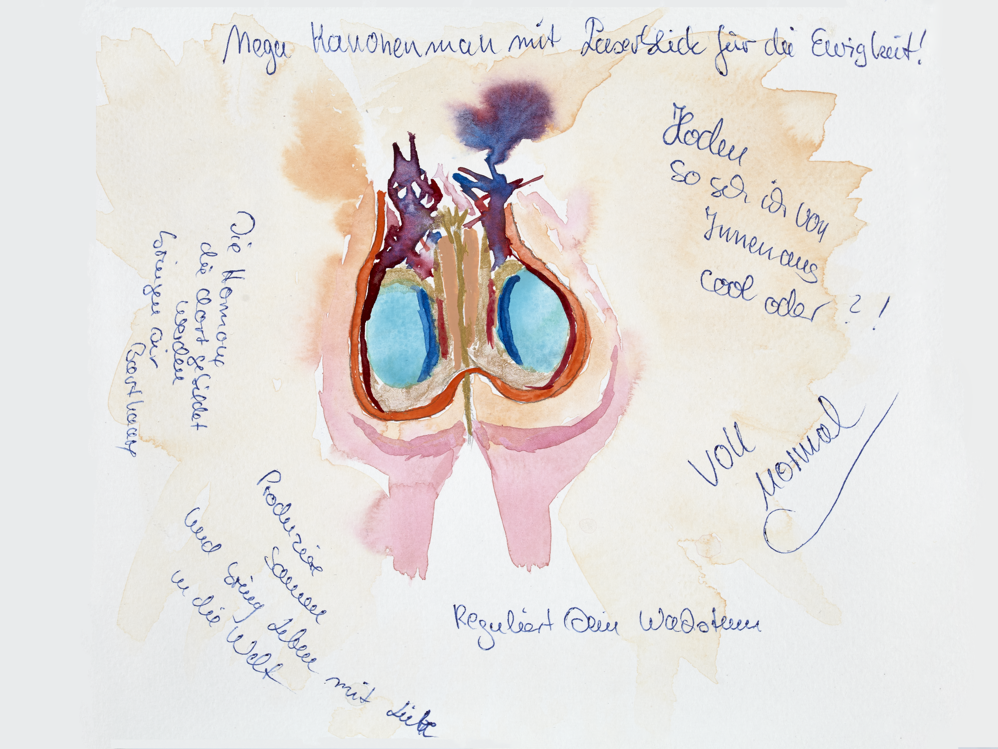 Mega Kanonenman mit Laserblick für die Ewigkeit!
Hoden
so seh ich von
Innen aus
cool oder ?!
Die Hormone
die dort gebildet
werden
bringen dir
Barthaare
voll
normal
Produziere
Samen
und bring Leben mit Liebe
in die Welt
Reguliert Dein Wachstum